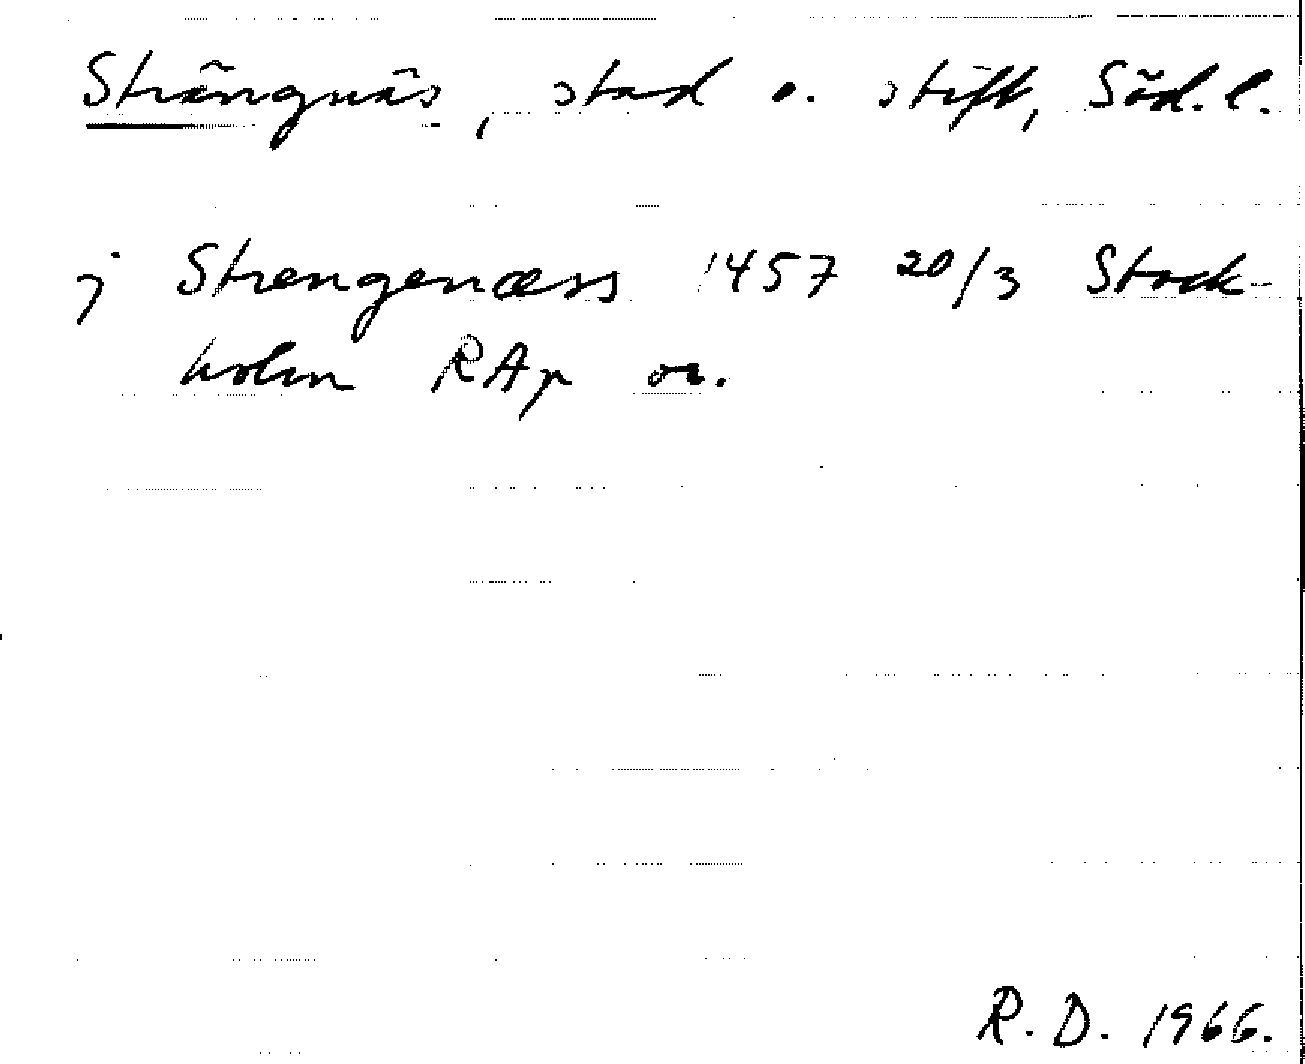 Strängnäs, stad o. stift, Söd.l.
j Strengenæss 1457 20/3 Stock-
holm RAp or.
R. D. 1966.